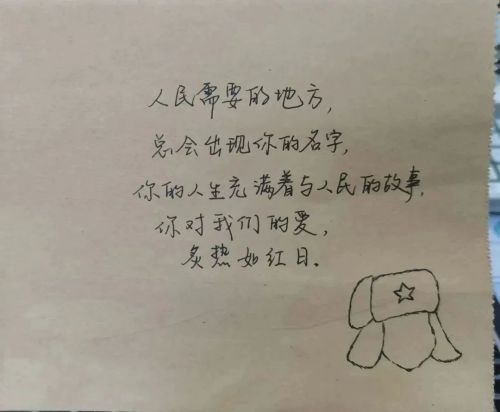 人民需要的地方,
总会出现你的名字,
你的人生充满着与人民的故事,
你对我们的爱,
炙热如红日.